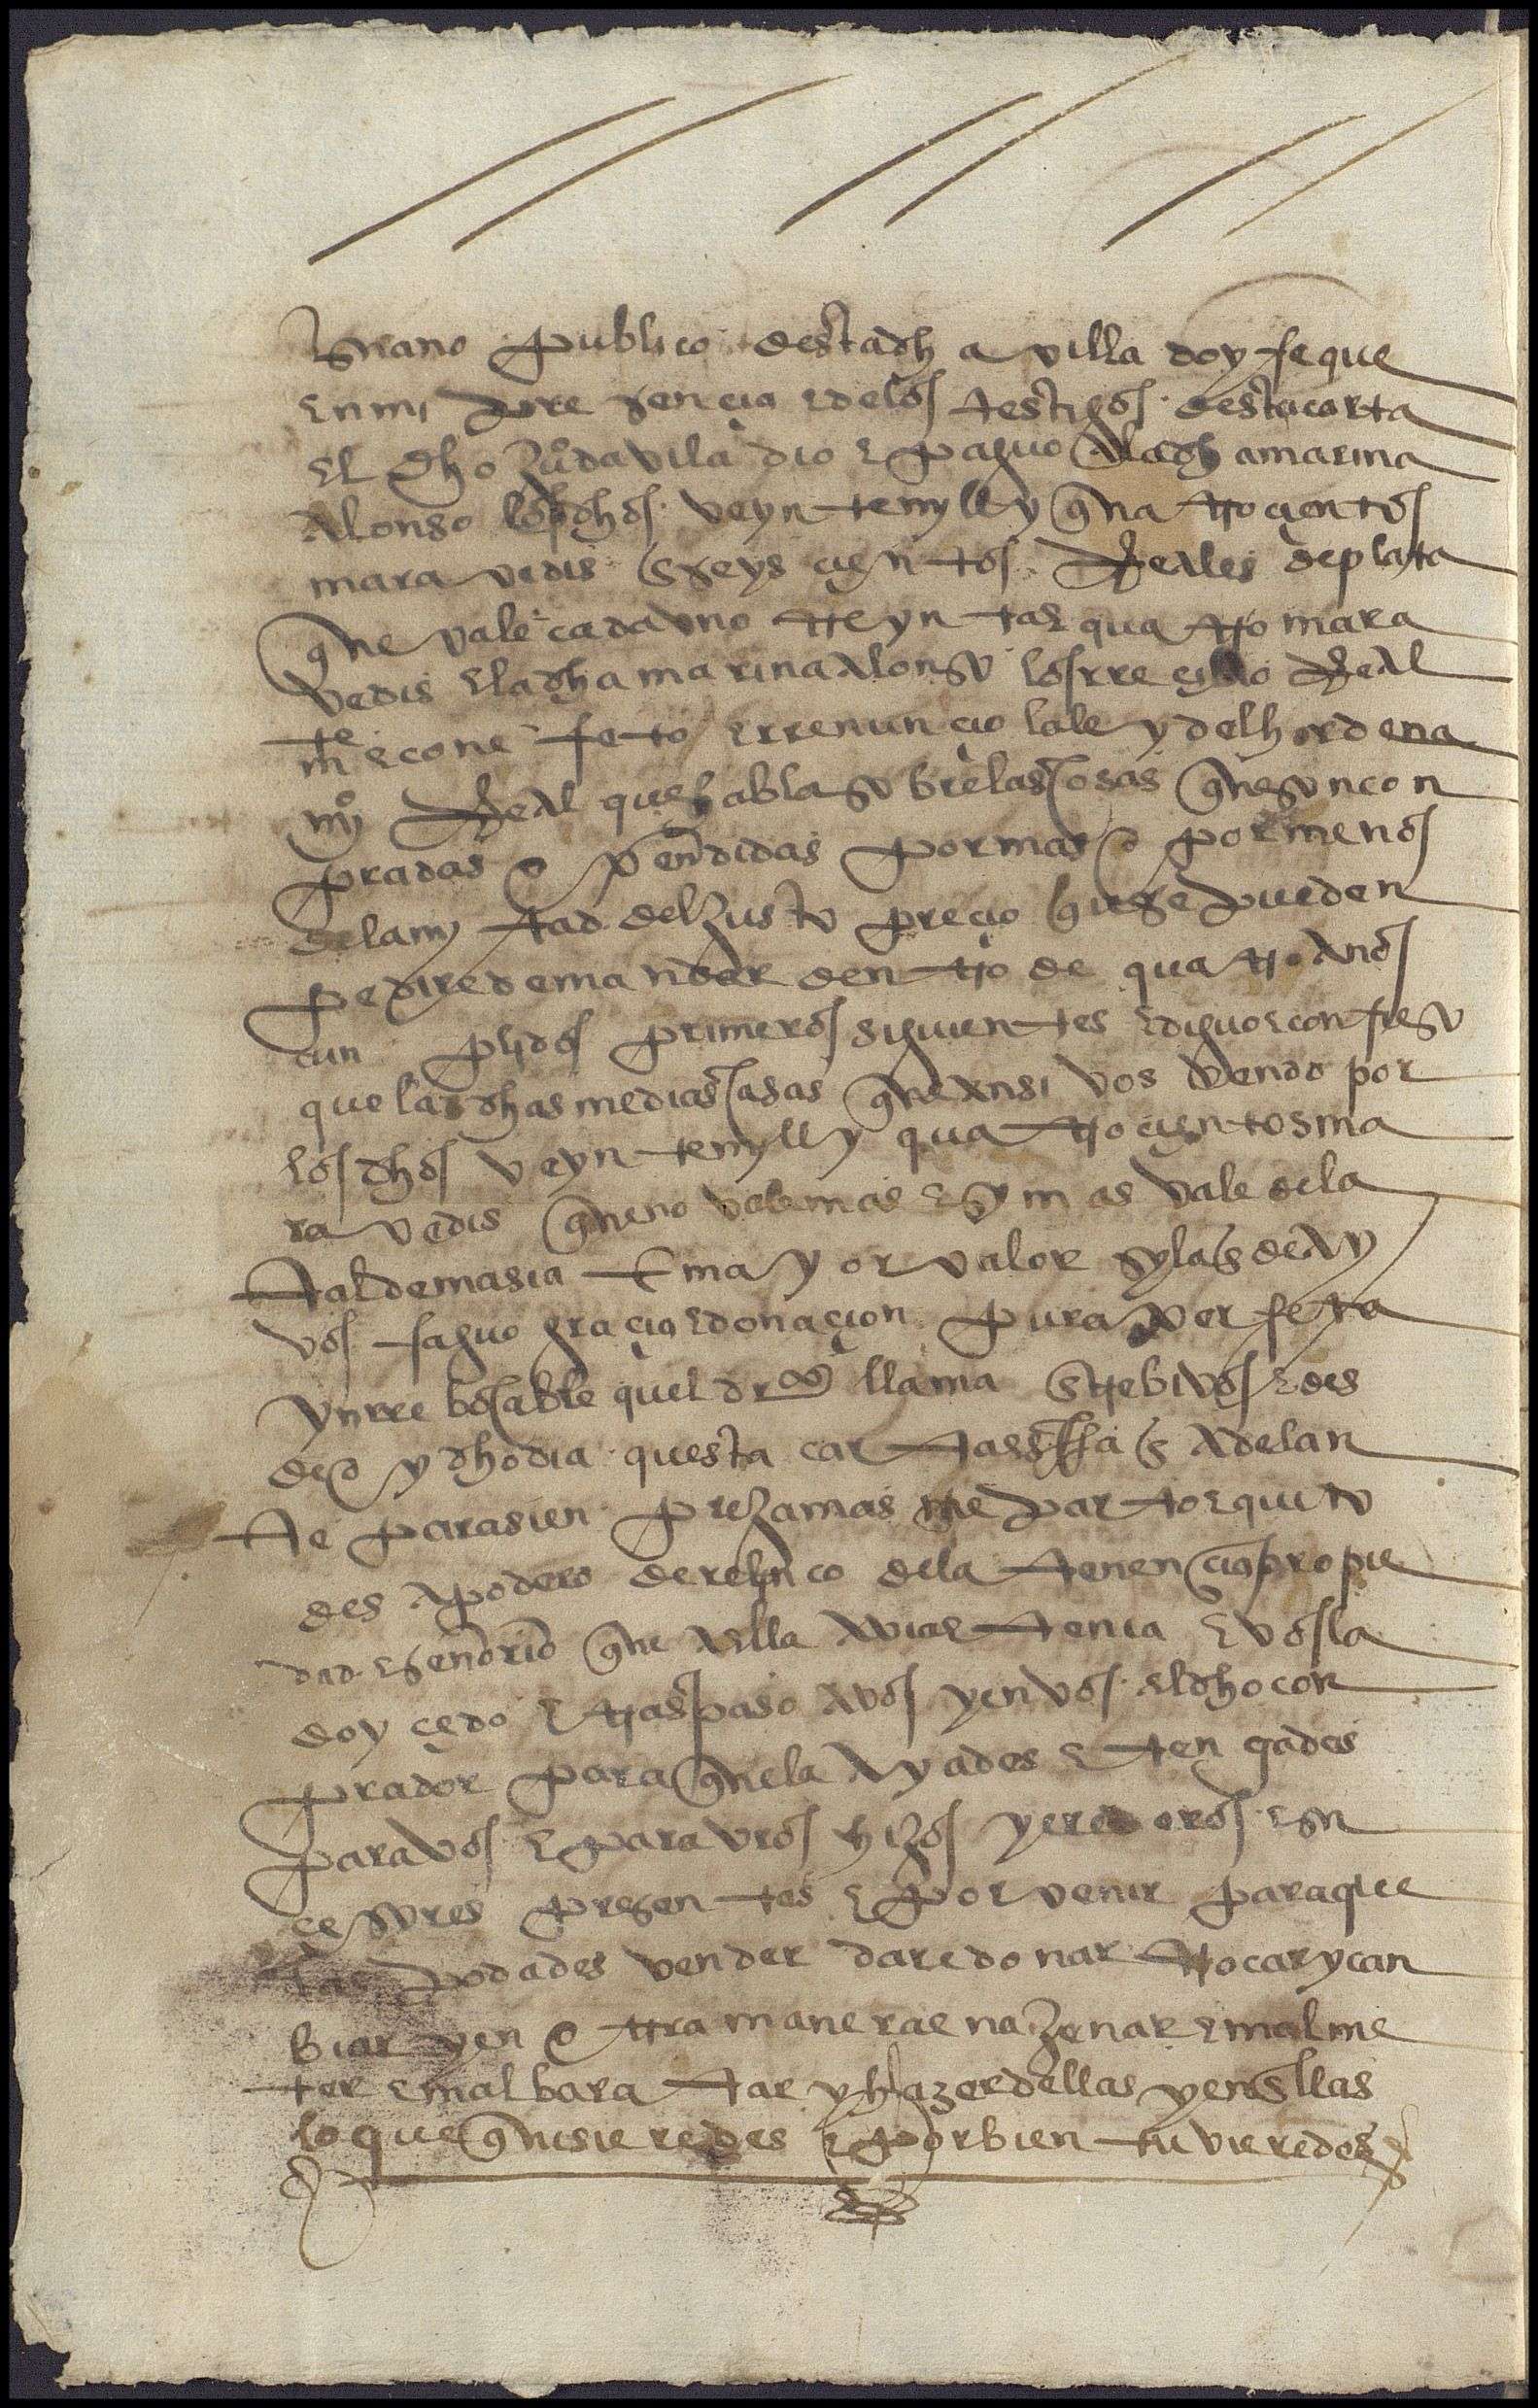 scrivano publico desta dha villa doy fe que
en mi presençia e de los testigos desta carta
el dho Juo davila dio e paguo a la dha marina
alonso los dhos veynte myll y quatroçientos
maravedis en seysçientos Reales de plata
que vale cada uno treynta e quatro mara
vedis e la dha marina alonso los rreçibio Real
mte e con efeto e rrenunçio la ley del hordena
myo Real que habla sobre las cosas que son con
pradas o vendidas por mas o por menos
de la mytad del justo preçio que se pueden
pedir e demandar dentro de quatro años
cunplidos primeros siguientes e diguo e confieso
que las dhas medias casas que ansi vos vendo por
los dhos veynte myll y quatroçientos ma
ravedis que no valen mas e sy mas vale de la
tal demasia e mayor valor sy la ende ay
vos faguo graçia e donaçion pura perfeta
ynrrebocable quel dro llama entre bivos e des
de oy dho dia questa carta es fha en adelan
te para sienpre jamas me parto e quito
desapodero derelinco de la tenençia propie
dad e señorio que a ella avia e tenia e vos la
doy çedo e traspaso a vos y en vos el dho con
prador para que la ayades e tengades
para vos e para vros hijos y erederos e su
çesores presentes e por venir para que
las podades vender dar e donar trocar y can
biar y en otra manera enajenar e malme
ter e malbaratar y hazer dellas y en ellas
lo que quisieredes e por bien tuvieredes